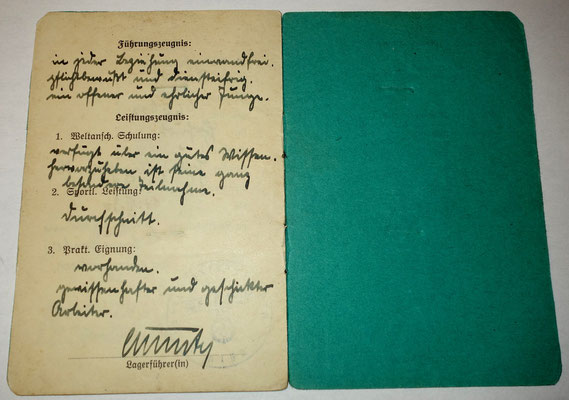 Führungszeugnis:
in jeder Beziehung einwandfrei.
pflichtbewußt und diensteifrig.
ein offener und ehrlicher Junge.
Leistungszeugnis:
1. Weltansch. Schulung:
verfügt über ein gutes Wissen.
hervorzuheben ist seine ganz
besondere Teilnahme.
2. Sportl. Leistung:
Durchschnitt.
3. Prakt. Eignung:
vorhanden.
gewissenhafter und geschickter
Arbeiter.
Lagerführer(in)